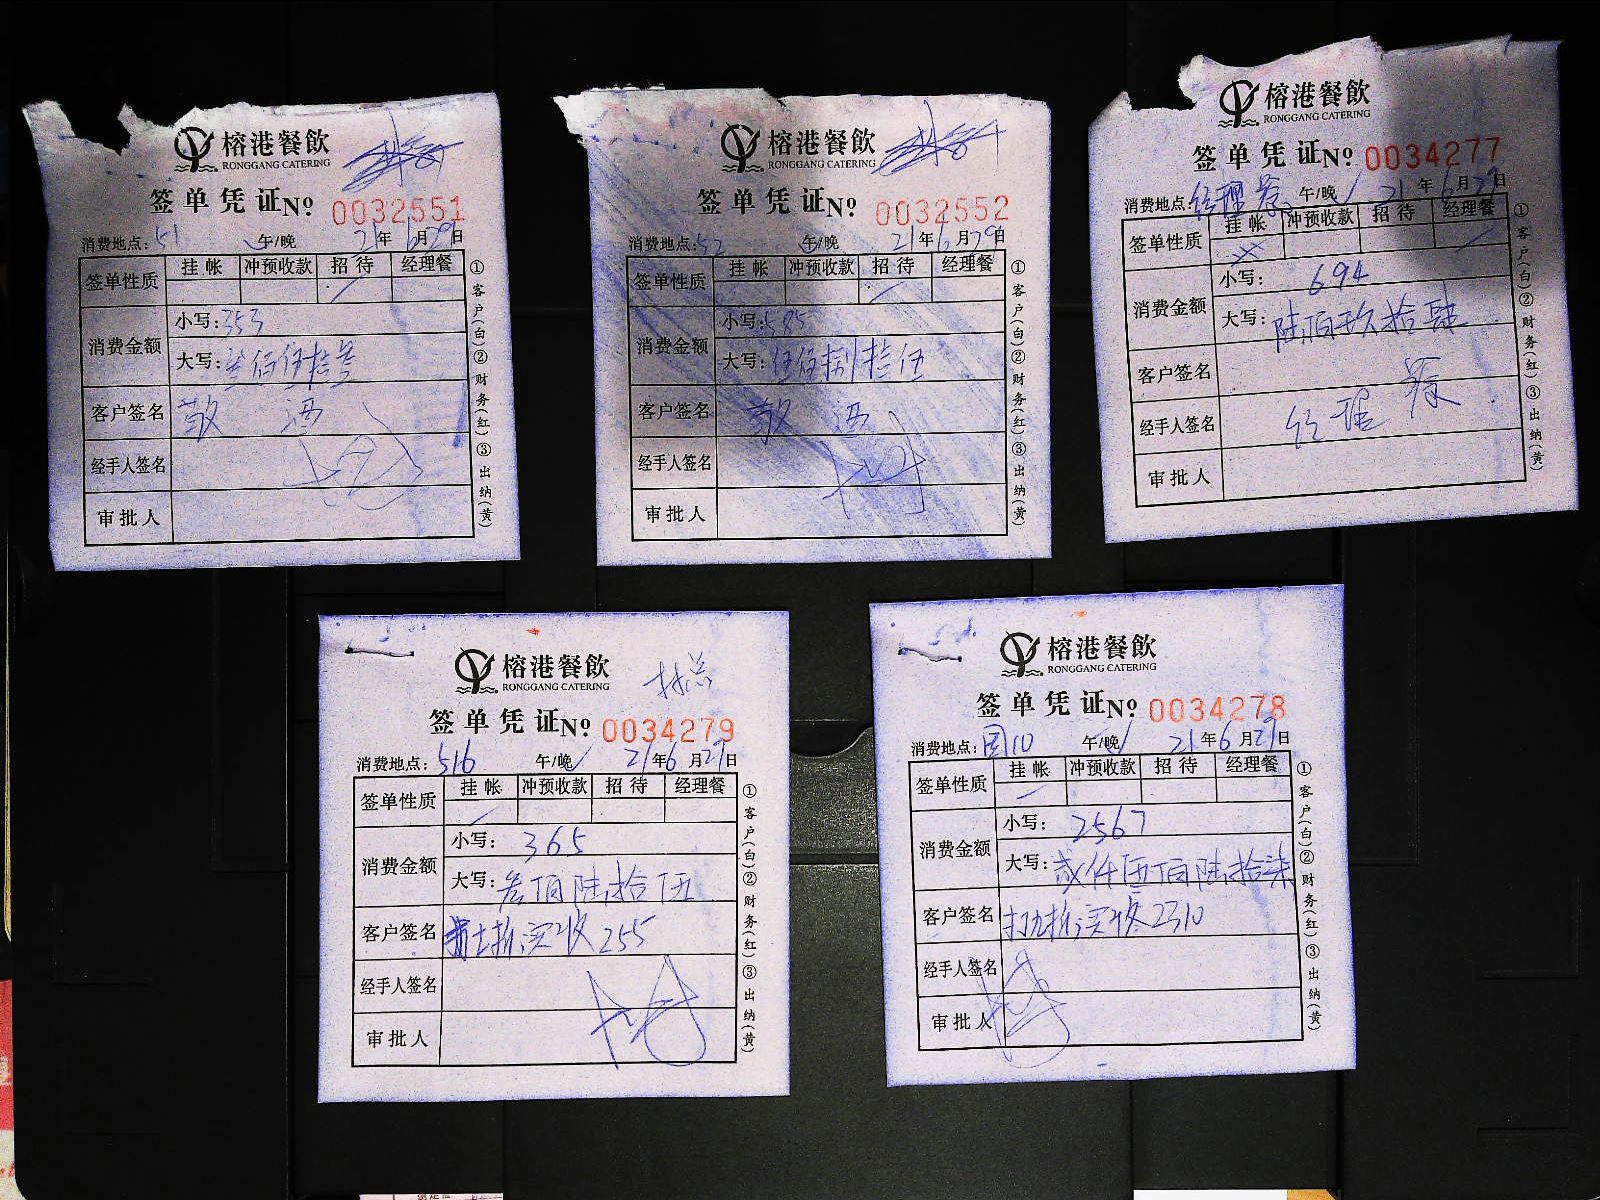 榕港餐飲
RONGGANG CATERING
签单凭证 № 0032551
消费地点: 51 午/晚 21年6月29日
签单性质 挂帐 冲预收款 招待 经理餐
消费金额 小写: 353
大写: 叁佰伍拾叁
客户签名 敬酒
经手人签名
审批人
①客户(白)②财务(红)③出纳(黄)
榕港餐飲
RONGGANG CATERING
签单凭证 № 0032552
消费地点: 52 午/晚 21年6月29日
签单性质 挂帐 冲预收款 招待 经理餐
消费金额 小写: 585
大写: 伍佰捌拾伍
客户签名 敬酒
经手人签名
审批人
①客户(白)②财务(红)③出纳(黄)
榕港餐飲
RONGGANG CATERING
签单凭证 № 0034277
消费地点: 经理餐 午/晚 21年6月29日
签单性质 挂帐 冲预收款 招待 经理餐
消费金额 小写: 694
大写: 陆佰玖拾肆
客户签名
经手人签名 经理餐
审批人
①客户(白)②财务(红)③出纳(黄)
榕港餐飲
RONGGANG CATERING
林总
签单凭证 № 0034279
消费地点: 516 午/晚 21年6月29日
签单性质 挂帐 冲预收款 招待 经理餐
消费金额 小写: 365
大写: 叁佰陆拾伍
客户签名 七折,实收255
经手人签名
审批人
①客户(白)②财务(红)③出纳(黄)
榕港餐飲
RONGGANG CATERING
签单凭证 № 0034278
消费地点: 园10 午/晚 21年6月29日
签单性质 挂帐 冲预收款 招待 经理餐
消费金额 小写: 2567
大写: 贰仟伍佰陆拾柒
客户签名 打九折,实收2310
经手人签名
审批人
①客户(白)②财务(红)③出纳(黄)